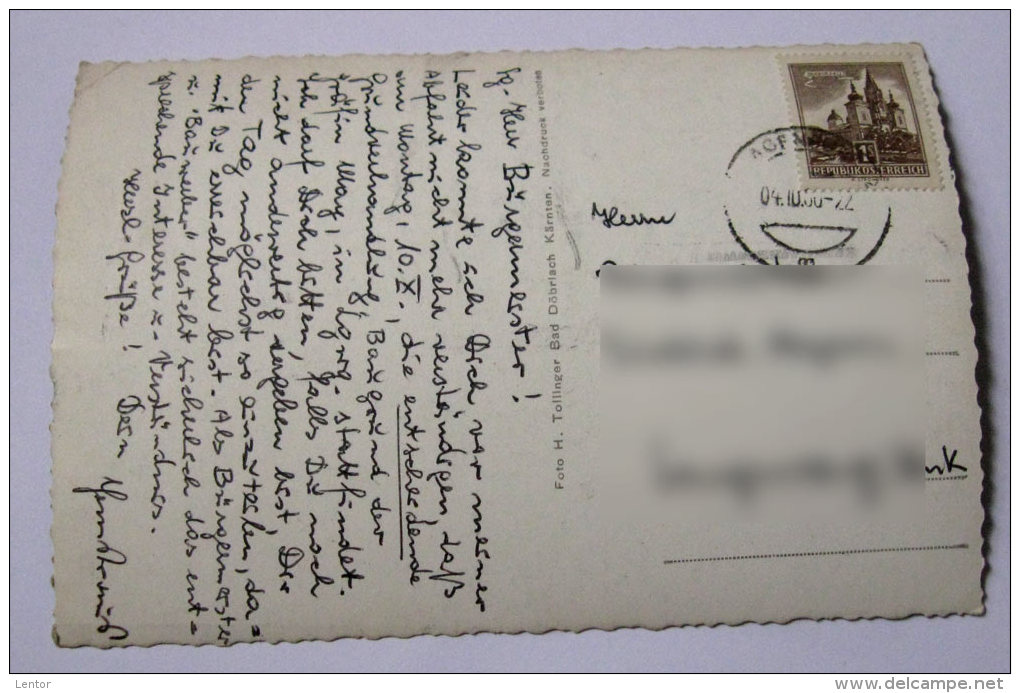 Sg. Herr Bürgermeister!
Leider konnte ich Dich vor meiner
Abfahrt nicht mehr verständigen, daß
am Montag, 10. X., die entscheidende
Grundverhandlung, Baugrund der
im statt findet.
Ich darf Dich bitten, falls Du noch
nicht anderweitig vergeben bist, Dir
den Tag möglichst so einzuteilen, da=
mit Du erreichbar bist. Als Bürgermeister
u. "Bauweber" besteht sicherlich das ent=
sprechende Interesse u. Verständnis.
Herzl. Grüße! Dein
Foto H. Tollinger Bad Döbriach Kärnten. Nachdruck verboten
Herrn
1S
REPUBLIK ÖSTERREICH
04.10.60-22
Lentor
delcampe.net